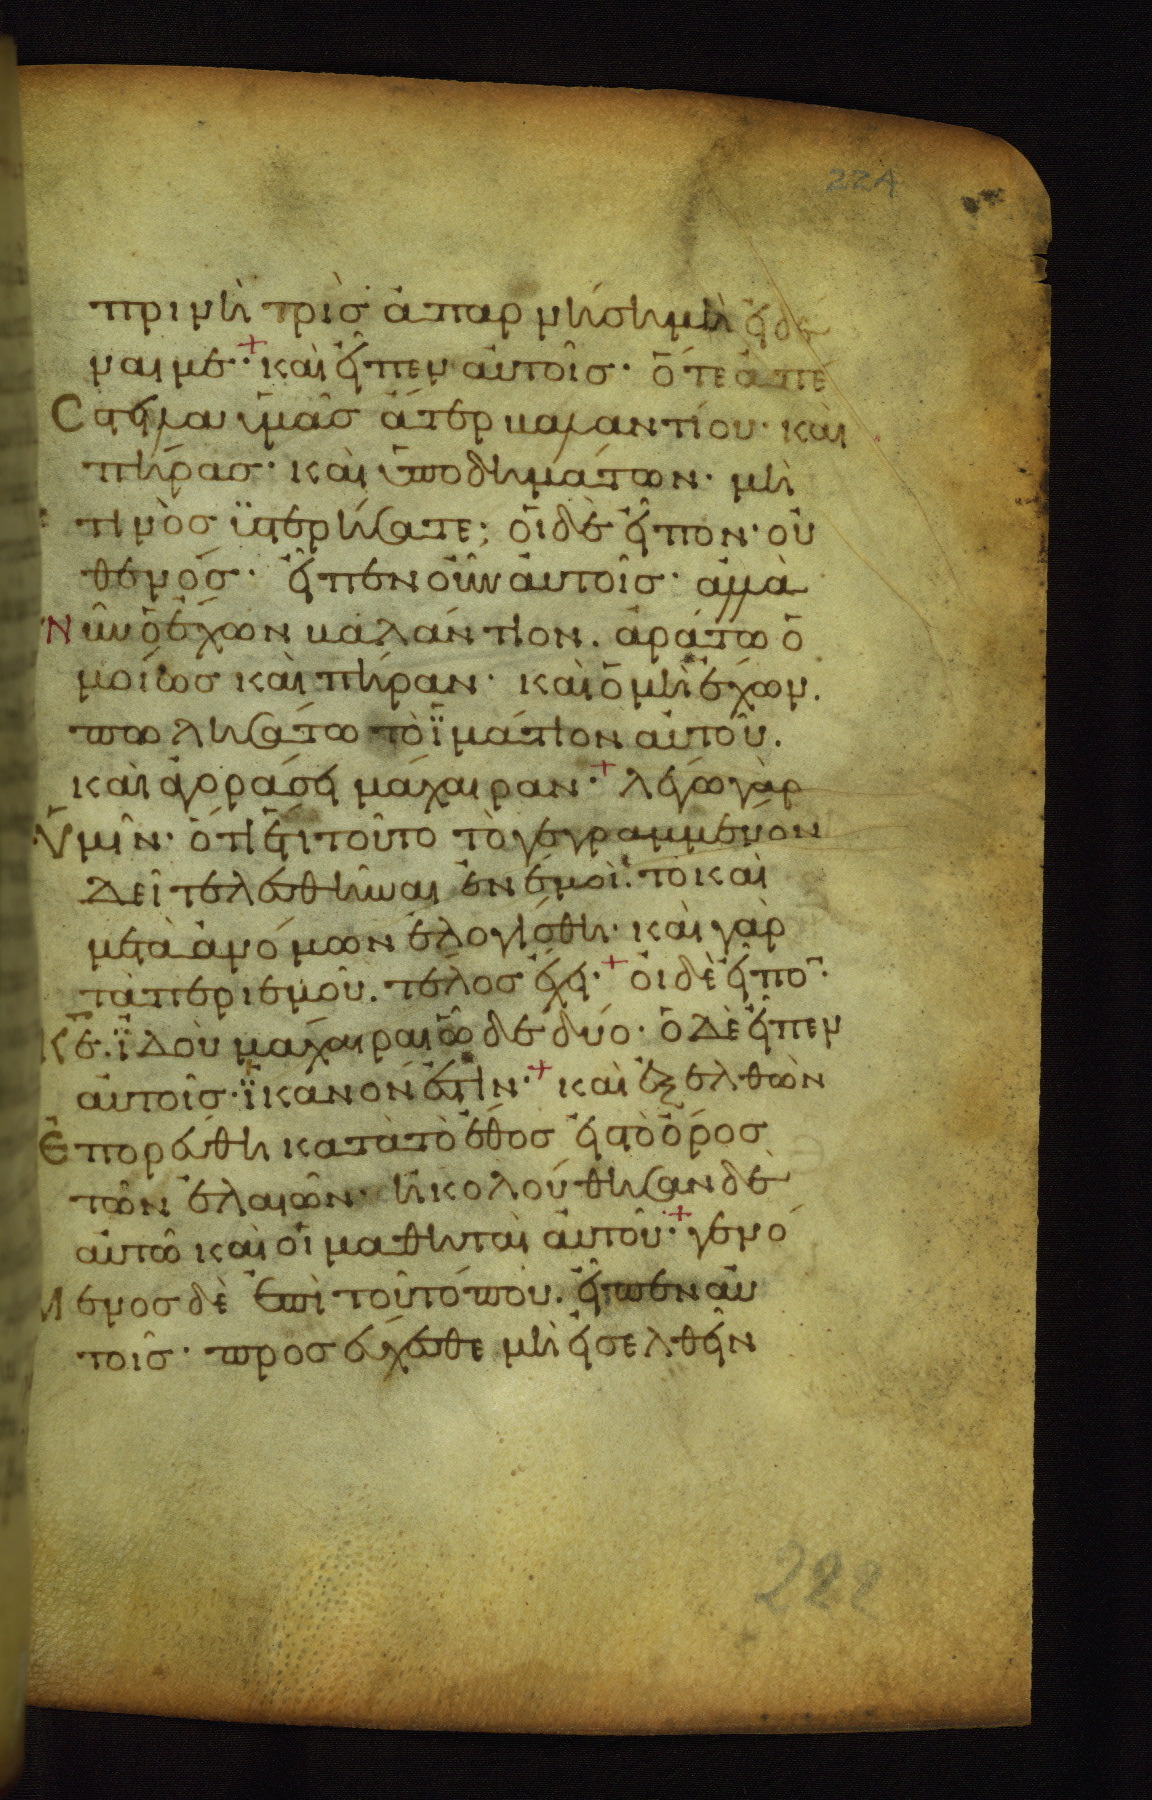 224
πρινὴ τρὶσ ἀπαρνήσημὴ εἰδέ
ναι με· + καὶ εἶπεν αὐτοῖσ· ὅτε ἀπέ
στειλα ὑμᾶσ ἄτερ βαλαντίου· καὶ
πήρασ· καὶ ὑποδημάτων· μὴ
τινὸσ ὑστερήσατε; οἱ δὲ εἶπον· οὐ
θενόσ· εἶπεν οὖν αὐτοῖσ· ἀλλὰ
νῦν ὁ ἔχων βαλάντιον. ἀράτω ὁ
μοίωσ καὶ πήραν· καὶ ὁ μὴ ἔχων.
πωλησάτω τὸ ἱμάτιον αὐτοῦ.
καὶ ἀγοράσει μάχαιραν· + λέγω γὰρ
ὑμῖν· ὅτι ἔτι τοῦτο τὸ γεγραμμένον
δεῖ τελεσθῆναι ἐν ἐμοί. τὸ καὶ
μετὰ ἀνόμων ἐλογίσθη· καὶ γὰρ
τὰ περὶ ἐμοῦ. τέλοσ ἔχει· + οἱ δὲ εἶπο̄·
κε̄. ἰδοὺ μάχαιραι ὧδε δύο· ὁ δὲ εἶπεν
αὐτοῖσ· ἱκανόν ἐστιν· + καὶ ἐξελθὼν
ἐπορεύθη κατὰ τὸ ἔθοσ εἰσ τὸ ὄροσ
τῶν ἐλαιῶν· ἠκολούθησαν δὲ
αὐτῶ καὶ οἱ μαθηταὶ αὐτοῦ· + γενό
μενοσ δὲ ἐπὶ τοῦ τόπου. εἶπεν αὐ
τοῖσ· προσεύχεσθε μὴ εἰσελθεῖν
222